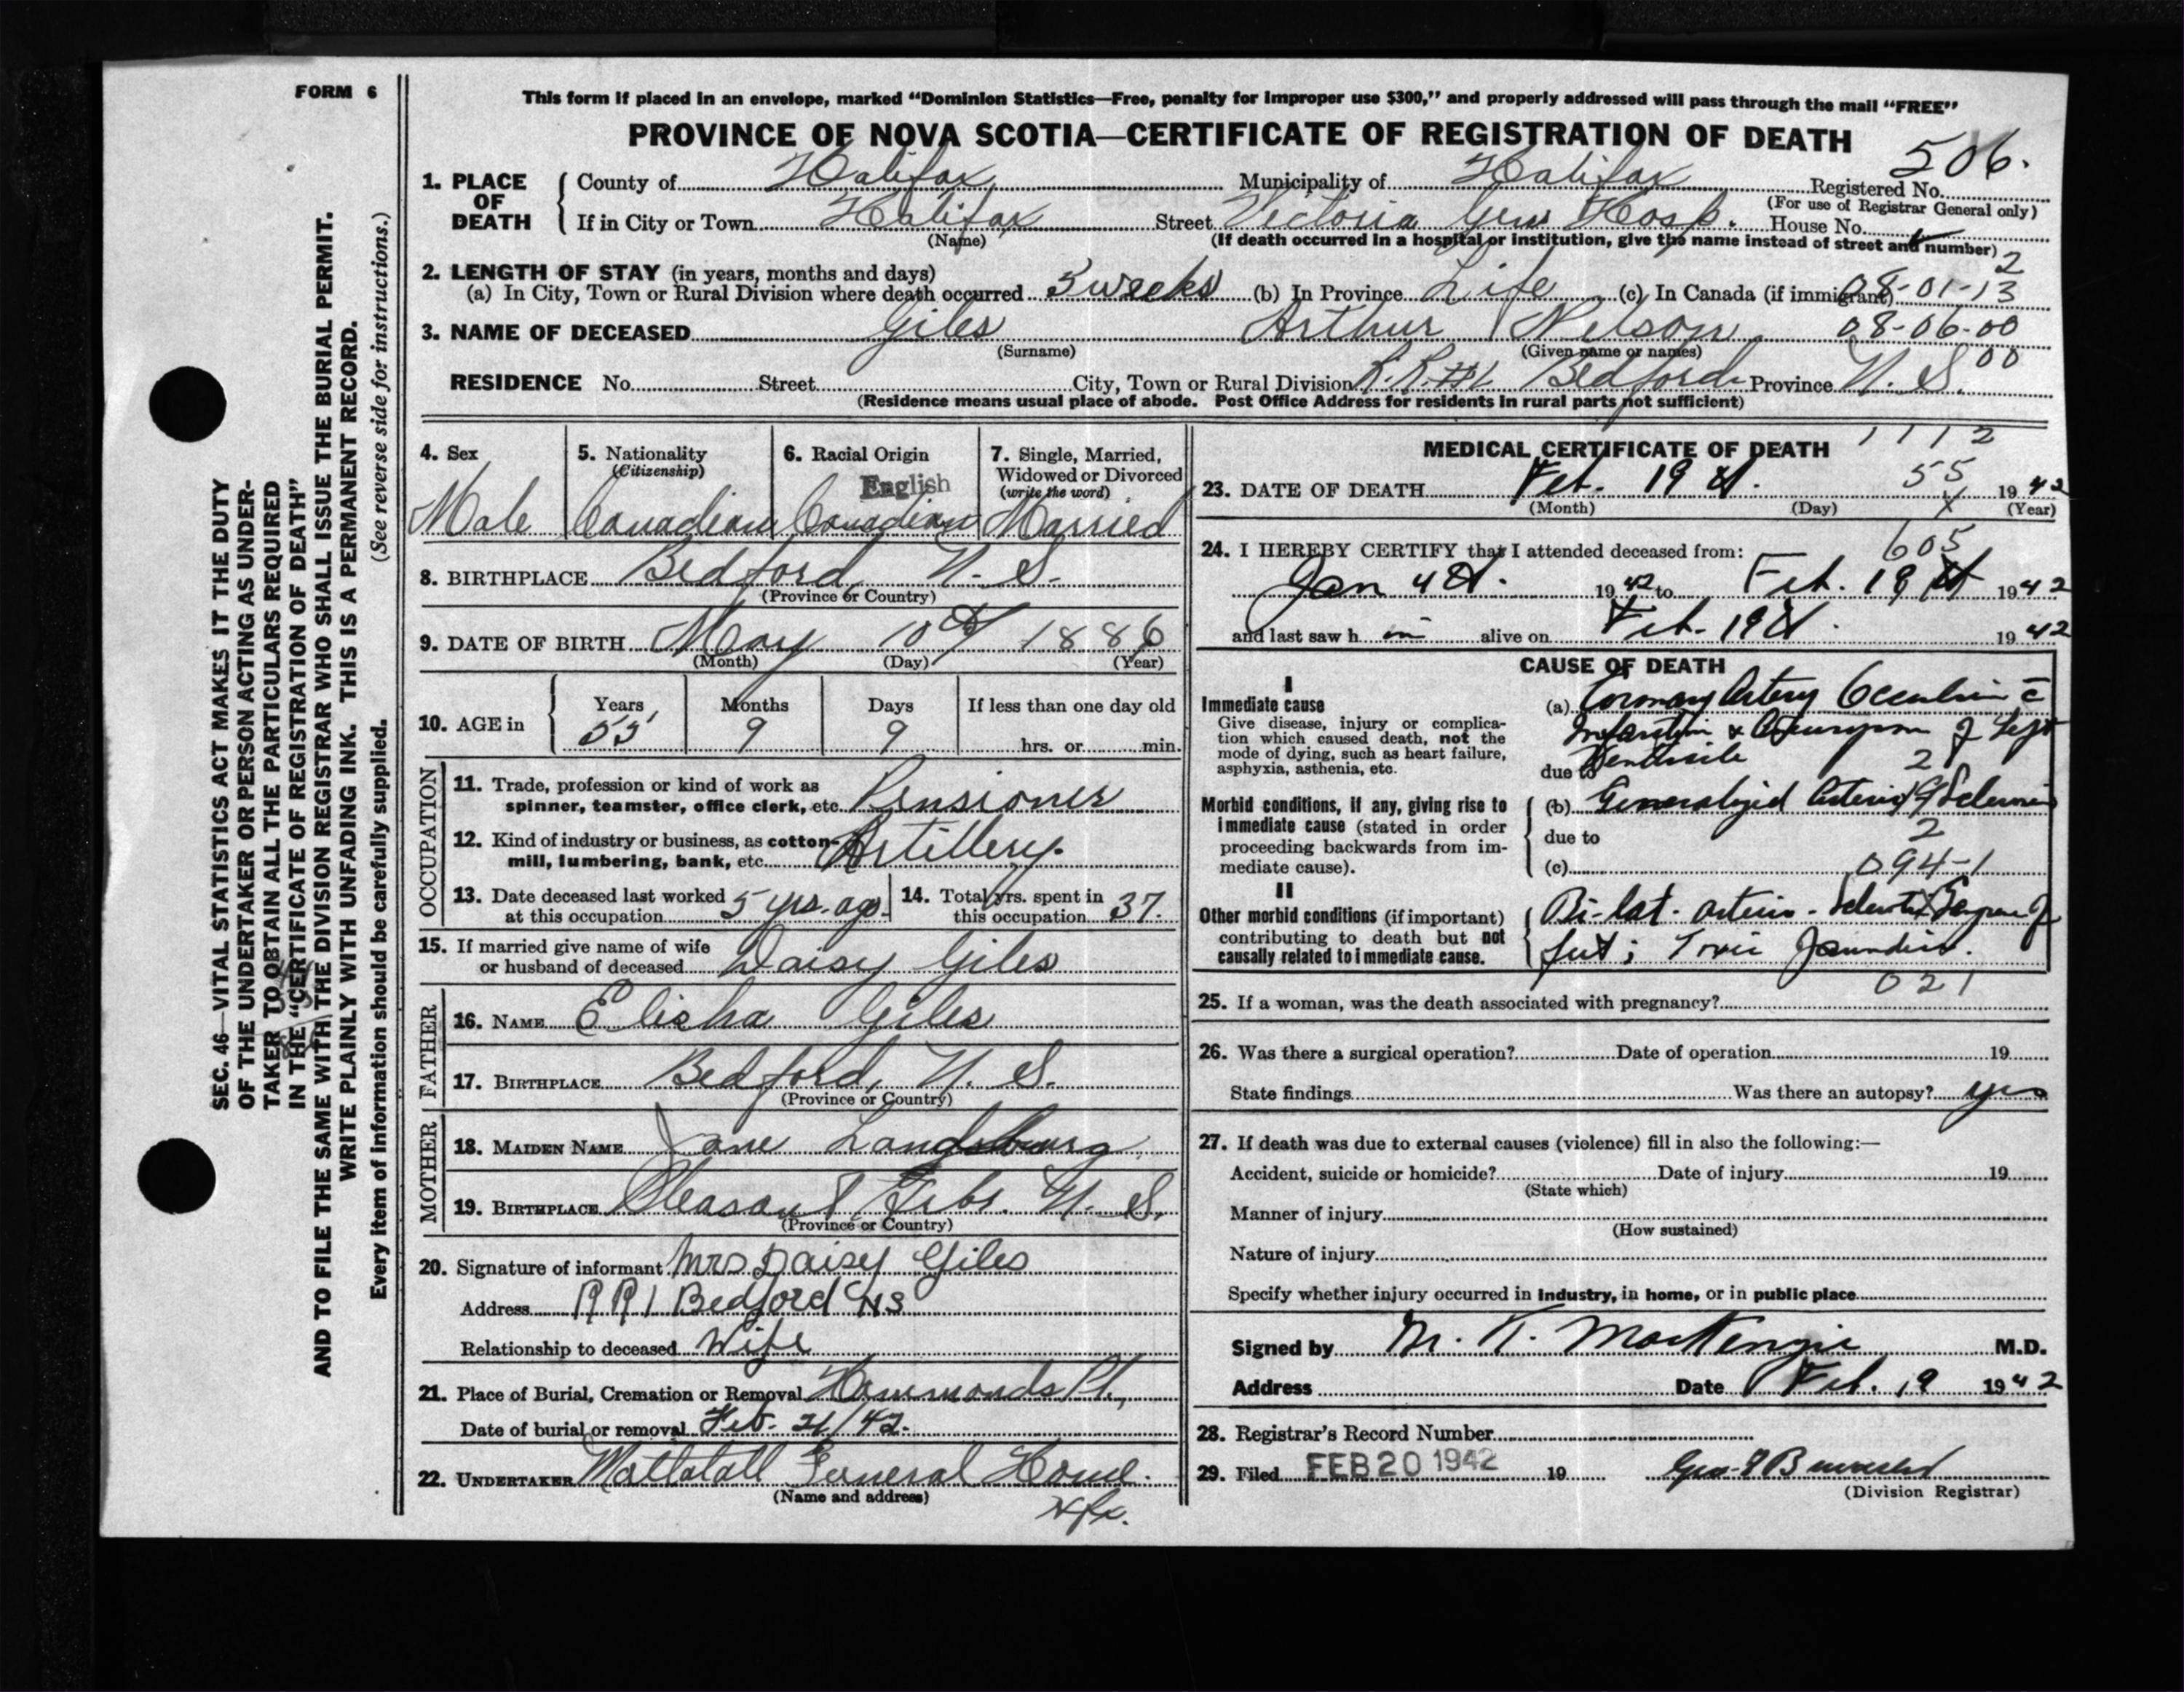 FORM 6
This form if placed in an envelope, marked “Dominion Statistics—Free, penalty for improper use $300,” and properly addressed will pass through the mail “FREE”
PROVINCE OF NOVA SCOTIA—CERTIFICATE OF REGISTRATION OF DEATH
506.
1. PLACE OF DEATH { County of Halifax Municipality of Halifax Registered No.
(For use of Registrar General only)
If in City or Town Halifax Street Victoria Gen Hosp. House No.
(Name) (If death occurred in a hospital or institution, give the name instead of street and number)
2
2. LENGTH OF STAY (in years, months and days)
(a) In City, Town or Rural Division where death occurred 3 weeks (b) In Province Life (c) In Canada (if immigrant) 08-01-13
3. NAME OF DECEASED Giles Arthur Nelson 08-06-00
(Surname) (Given name or names)
00
RESIDENCE No. Street City, Town or Rural Division R.R.#1 Bedford Province N.S.
(Residence means usual place of abode. Post Office Address for residents in rural parts not sufficient)
4. Sex Male
5. Nationality (Citizenship) Canadian
6. Racial Origin English Canadian
7. Single, Married, Widowed or Divorced (write the word) Married
8. BIRTHPLACE Bedford, N.S.
(Province or Country)
9. DATE OF BIRTH May 10th 1886
(Month) (Day) (Year)
10. AGE in { Years 55 Months 9 Days 9 If less than one day old hrs. or min.
OCCUPATION
11. Trade, profession or kind of work as
spinner, teamster, office clerk, etc. Pensioner
12. Kind of industry or business, as cotton-
mill, lumbering, bank, etc. Artillery.
13. Date deceased last worked at this occupation 5 yrs. ago.
14. Total yrs. spent in this occupation 37.
15. If married give name of wife
or husband of deceased Daisy Giles
FATHER
16. NAME Elisha Giles
17. BIRTHPLACE Bedford, N.S.
(Province or Country)
MOTHER
18. MAIDEN NAME Jane Landsburg
19. BIRTHPLACE Pleasant Hrbr. N.S.
(Province or Country)
20. Signature of informant Mrs Daisy Giles
Address RR 1 Bedford NS
Relationship to deceased Wife
21. Place of Burial, Cremation or Removal Hammonds Pl.,
Date of burial or removal Feb. 21/42.
22. UNDERTAKER Mattatall Funeral Home.
(Name and address)
Hfx.
MEDICAL CERTIFICATE OF DEATH
1112
55
23. DATE OF DEATH Feb. 19th. 1942
(Month) (Day) (Year)
X
24. I HEREBY CERTIFY that I attended deceased from:
605
Jan 4th. 1942 to Feb. 19th 1942
and last saw h im alive on Feb. 19th. 1942
CAUSE OF DEATH
I
Immediate cause
Give disease, injury or complica-
tion which caused death, not the
mode of dying, such as heart failure,
asphyxia, asthenia, etc.
(a) Coronary Artery Occlusion c̄
Infarction & Aneurysm of Left
due to Ventricle
2
Morbid conditions, if any, giving rise to
immediate cause (stated in order
proceeding backwards from im-
mediate cause).
(b) Generalized Arterio Sclerosis
due to
2
(c) 094-1
II
Other morbid conditions (if important)
contributing to death but not
causally related to immediate cause.
Bi-lat. arterio-Sclerotic Gangrene of
feet; Toxic Jaundice.
021
25. If a woman, was the death associated with pregnancy?
26. Was there a surgical operation? Date of operation 19
State findings Was there an autopsy? yes
27. If death was due to external causes (violence) fill in also the following:—
Accident, suicide or homicide? Date of injury 19
(State which)
Manner of injury
(How sustained)
Nature of injury
Specify whether injury occurred in industry, in home, or in public place
Signed by M. T. MacKenzie M.D.
Address Date Feb. 19 1942
28. Registrar's Record Number
29. Filed FEB 20 1942 19
(Division Registrar)
SEC. 46—VITAL STATISTICS ACT MAKES IT THE DUTY
OF THE UNDERTAKER OR PERSON ACTING AS UNDER-
TAKER TO OBTAIN ALL THE PARTICULARS REQUIRED
IN THE “CERTIFICATE OF REGISTRATION OF DEATH”
AND TO FILE THE SAME WITH THE DIVISION REGISTRAR WHO SHALL ISSUE THE BURIAL PERMIT.
WRITE PLAINLY WITH UNFADING INK. THIS IS A PERMANENT RECORD.
Every item of information should be carefully supplied. (See reverse side for instructions.)